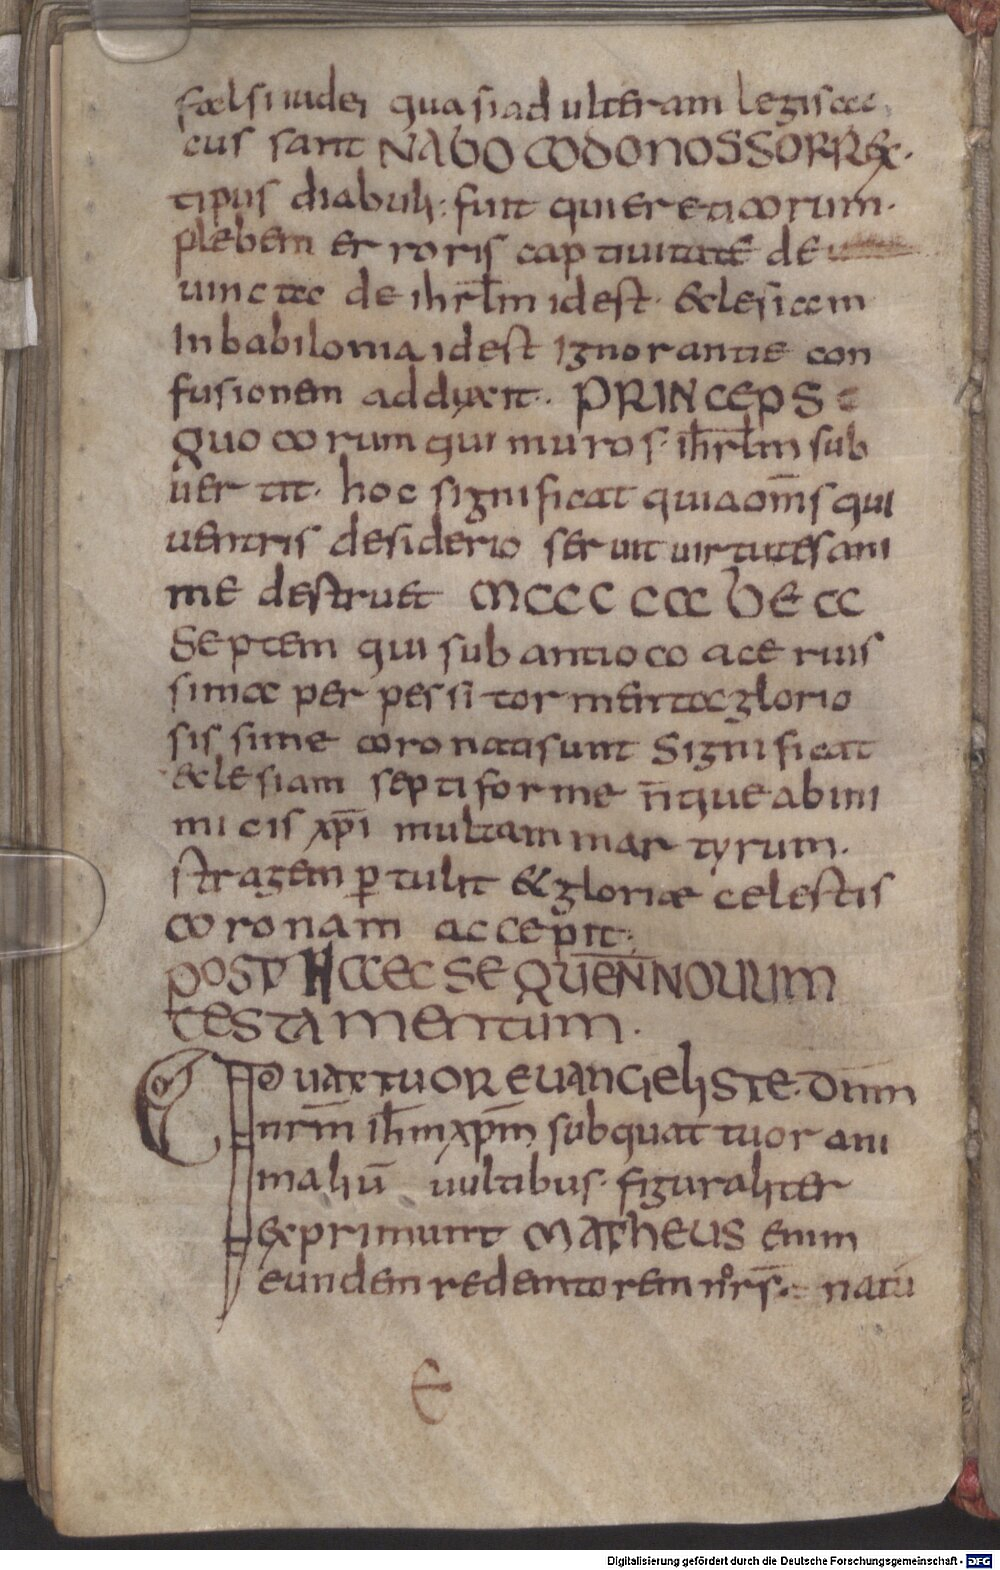 falsi iudei quasi adulteram legis ac
cus sant NABOCODONOSSOR REX.
tipus diabuli: fuit qui ereticorum.
plebem erroris captiuitate de
uincta de ihrl̄m idest. &clesiam
In babilonia idest Ignorantie con
fusionem adduxit. PRINCEPS
quocorum qui muros. ih̄rl̄m sub
uertit. hoc significat quia om̄s qui
uentris desiderio seruit uirtutes ani
me destruet MACCABEA
Septem qui sub antioco aceruis
sima perpessi tormenta glorio
sissime coronati sunt Significat
&clesiam septiforme n̄que ab ini
micis xp̄i multam martyrum.
stragem ꝑtulit & gloriæ celestis
coronam accepit:
POST HAEC SEQUEN̄ NOUUM
TESTAMENTUM.
QUATTUOR EUANGELISTE. Dn̄m
nr̄m ih̄m xp̄m sub quattuor ani
maliū uultibus. figuraliter
exprimunt MATHEUS enim
eundem redemtorem nr̄s. natū
E
Digitalisierung gefördert durch die Deutsche Forschungsgemeinschaft - DFG